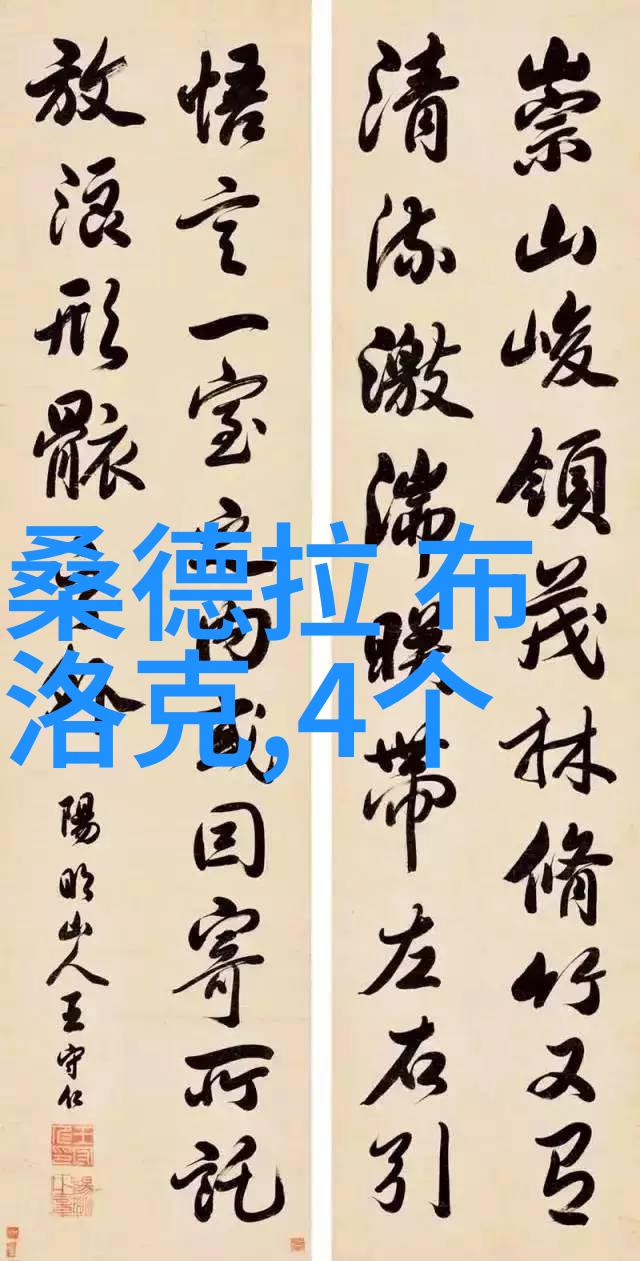 崇山峻領茂林脩竹又有
清流激湍暎帶左右引
悟言一室之內或因寄所託
放浪形骸之外
陽明山人王守仁
桑德拉 布
洛克,4个